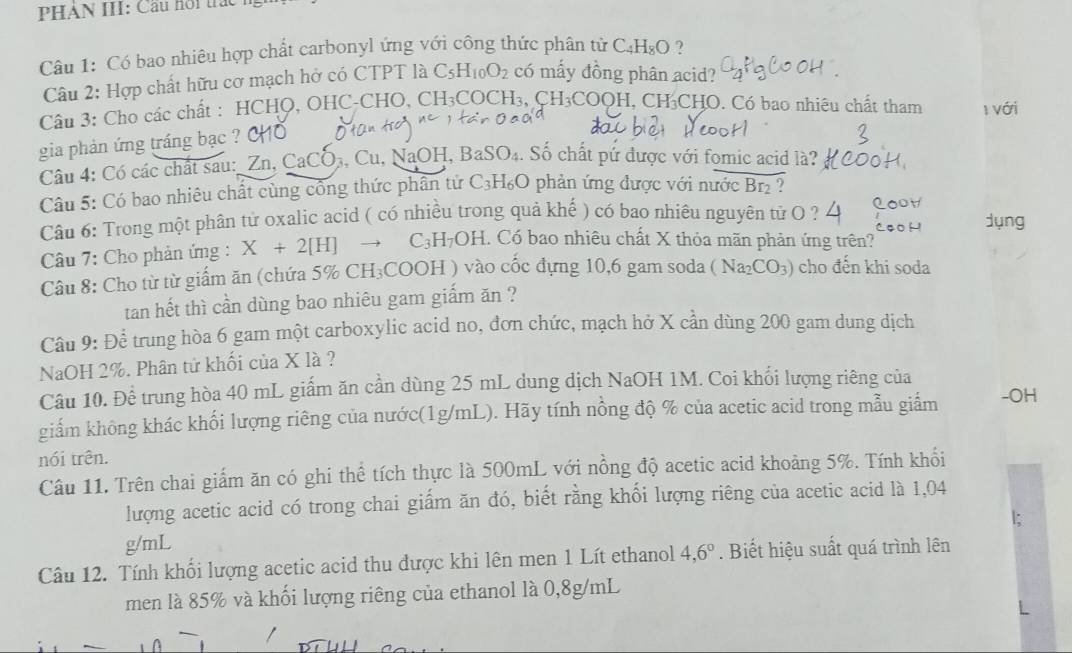 PHẦN III: Câu hỏi
Câu 1: Có bao nhiêu hợp chất carbonyl ứng với công thức phân tử C₄H₈O ?
Câu 2: Hợp chất hữu cơ mạch hở có CTPT là C₅H₁₀O₂ có mấy đồng phân acid? C₄H₉COOH.
Câu 3: Cho các chất : HCHO, OHC-CHO, CH₃COCH₃, CH₃COOH, CH₃CHO. Có bao nhiêu chất tham
với
gia phản ứng tráng bạc ? CHO đặc biệt HCOOH 3
Câu 4: Có các chất sau: Zn, CaCO₃, Cu, NaOH, BaSO₄. Số chất pứ được với fomic acid là? HCOOH.
Câu 5: Có bao nhiêu chất cùng công thức phân tử C₃H₆O phản ứng được với nước Br₂ ?
Câu 6: Trong một phân tử oxalic acid ( có nhiều trong quả khế ) có bao nhiêu nguyên tử O ? 4 COOH
COOH
dụng
Câu 7: Cho phản ứng : X + 2[H] → C₃H₇OH. Có bao nhiêu chất X thỏa mãn phản ứng trên?
Câu 8: Cho từ từ giấm ăn (chứa 5% CH₃COOH ) vào cốc đựng 10,6 gam soda ( Na₂CO₃) cho đến khi soda
tan hết thì cần dùng bao nhiêu gam giấm ăn ?
Câu 9: Để trung hòa 6 gam một carboxylic acid no, đơn chức, mạch hở X cần dùng 200 gam dung dịch
NaOH 2%. Phân tử khối của X là ?
Câu 10. Để trung hòa 40 mL giấm ăn cần dùng 25 mL dung dịch NaOH 1M. Coi khối lượng riêng của
giấm không khác khối lượng riêng của nước(1g/mL). Hãy tính nồng độ % của acetic acid trong mẫu giấm
-OH
nói trên.
Câu 11. Trên chai giấm ăn có ghi thể tích thực là 500mL với nồng độ acetic acid khoảng 5%. Tính khối
lượng acetic acid có trong chai giấm ăn đó, biết rằng khối lượng riêng của acetic acid là 1,04
l;
g/mL
Câu 12. Tính khối lượng acetic acid thu được khi lên men 1 Lít ethanol 4,6º . Biết hiệu suất quá trình lên
men là 85% và khối lượng riêng của ethanol là 0,8g/mL
L